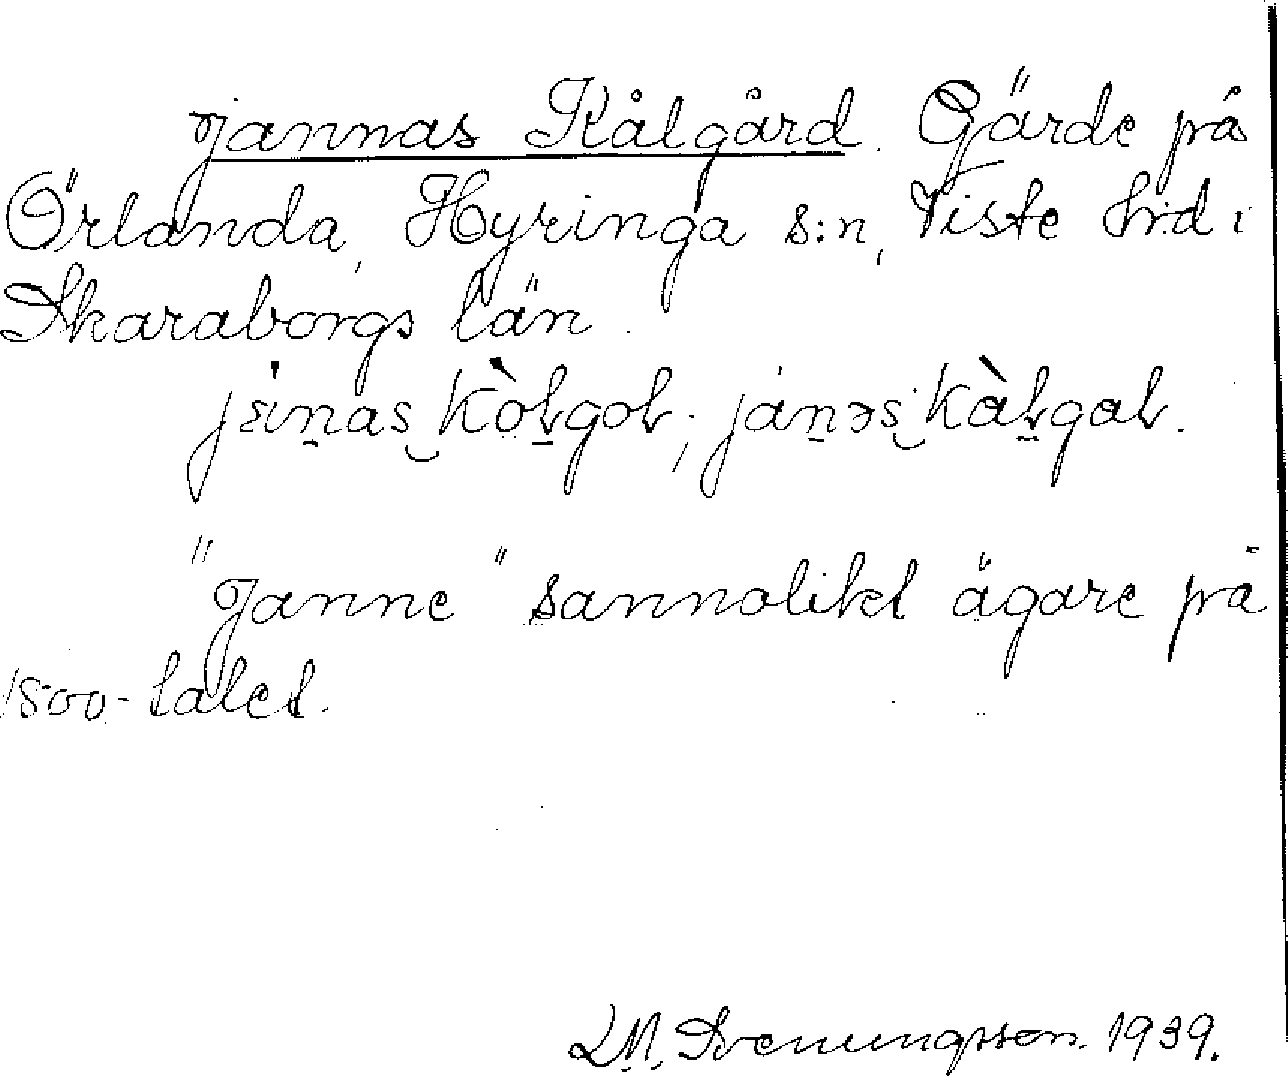 Jannas Kålgård. Gärde på
Örlanda, Hyringa s:n, Viste hd i
Skaraborgs län.
jánas kòLgoL; jánəs kàLgaL.
"Janne" sannolikt ägare på
1800-talet.
L.M. Svenungsson. 1939.